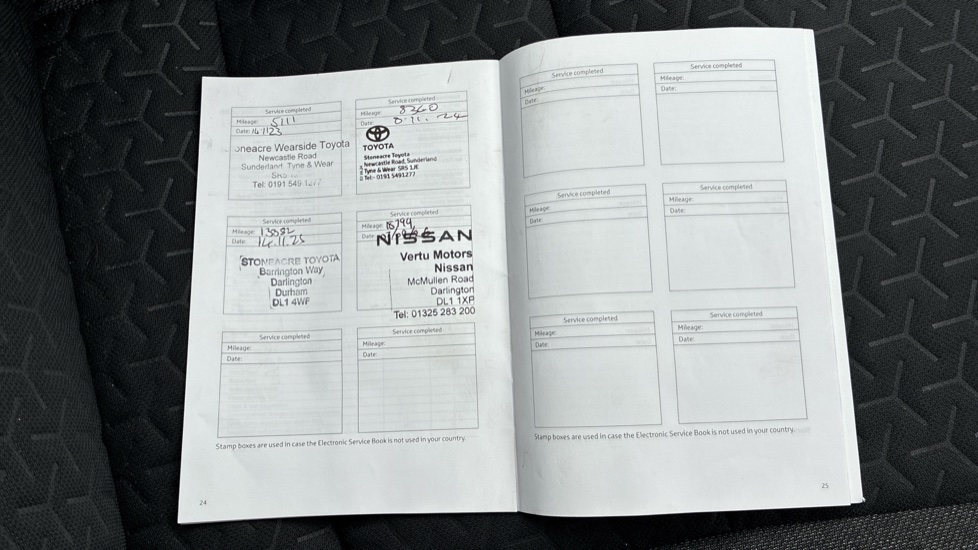 Service completed
Mileage: 5111
Date:
oneacre Wearside Toyota
Newcastle Road
Sunderland, Tyne & Wear
Tel: 0191 549
Service completed
Mileage: 8260
Date:
TOYOTA
Stoneacre Toyota
Newcastle Road, Sunderland
Tyne & Wear SR5 1JE
Tel:- 0191 5491277
Service completed
Mileage: 13082
Date: 14.11.25
STONEACRE TOYOTA
Barrington Way
Darlington
Durham
DL1 4WF
Service completed
Mileage:
Date:
NISSAN
Vertu Motors
Nissan
McMullen Road
Darlington
DL1 1XP
Tel: 01325 283 200
Service completed
Mileage:
Date:
Service completed
Mileage:
Date:
Stamp boxes are used in case the Electronic Service Book is not used in your country.
24
Service completed
Mileage:
Date:
Service completed
Mileage:
Date:
Service completed
Mileage:
Date:
Service completed
Mileage:
Date:
Service completed
Mileage:
Date:
Service completed
Mileage:
Date:
Stamp boxes are used in case the Electronic Service Book is not used in your country.
25